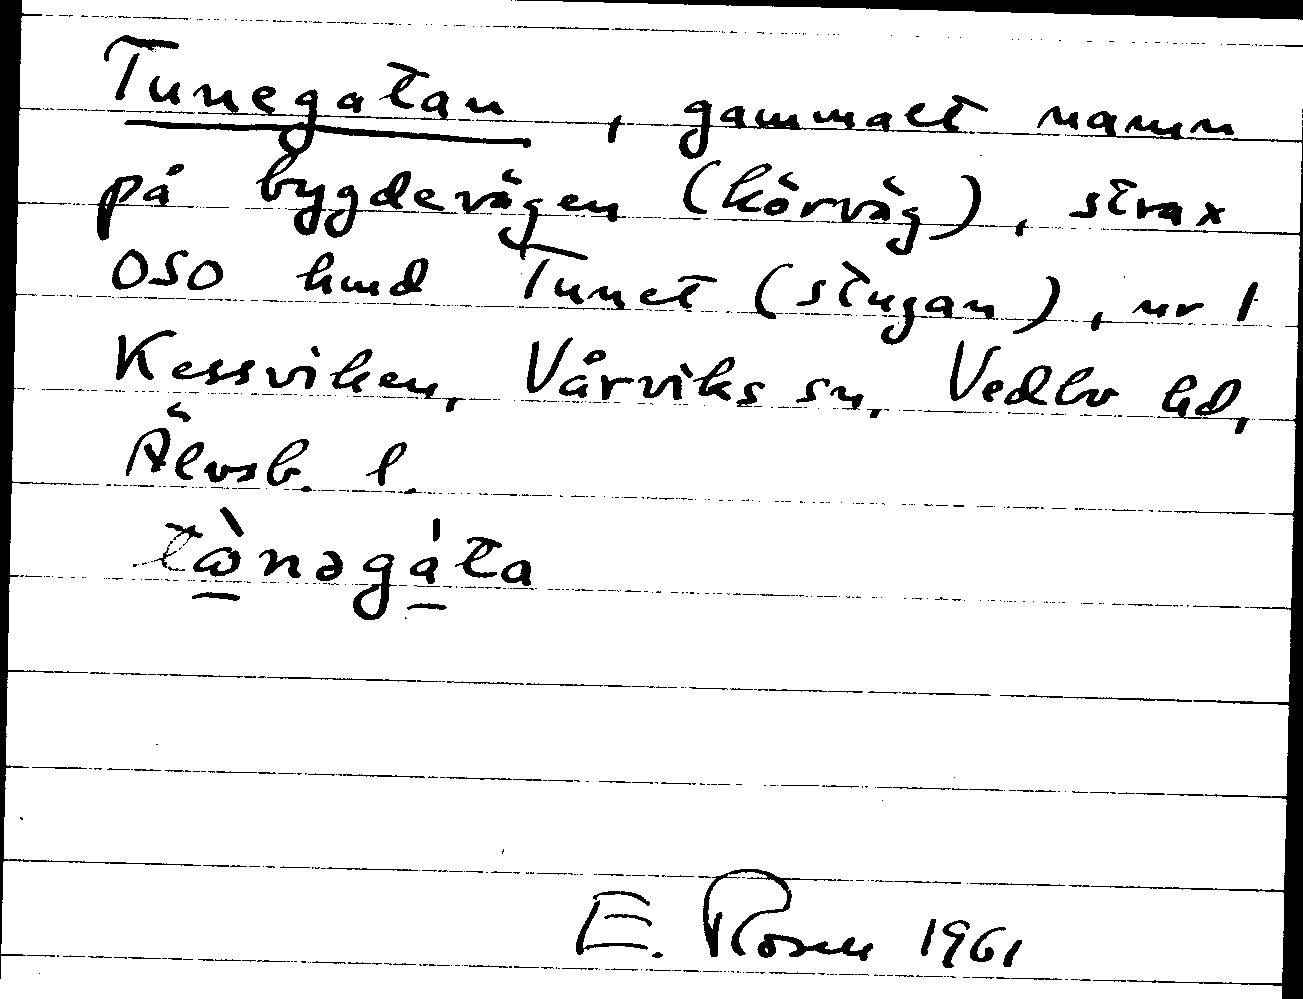 Tunegatan, gammalt namn
på bygdevägen (körväg), strax
OSO hmd Tunet (stugan), nr 1
Kessviken, Vårviks sn, Vedbo hd,
Älvsb. l.
tὼnəgáta
E. Rosen 1961